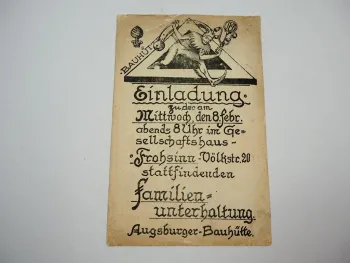 BAUHÜT
Einladung.
zu der am
Mittwoch, den 8. febr.
abends 8 Uhr im Ge-
sellschaftshaus-
Frohsinn-Völkstr. 20
stattfindenden
Familien=
unterhaltung.
Augsburger-Bauhütte.